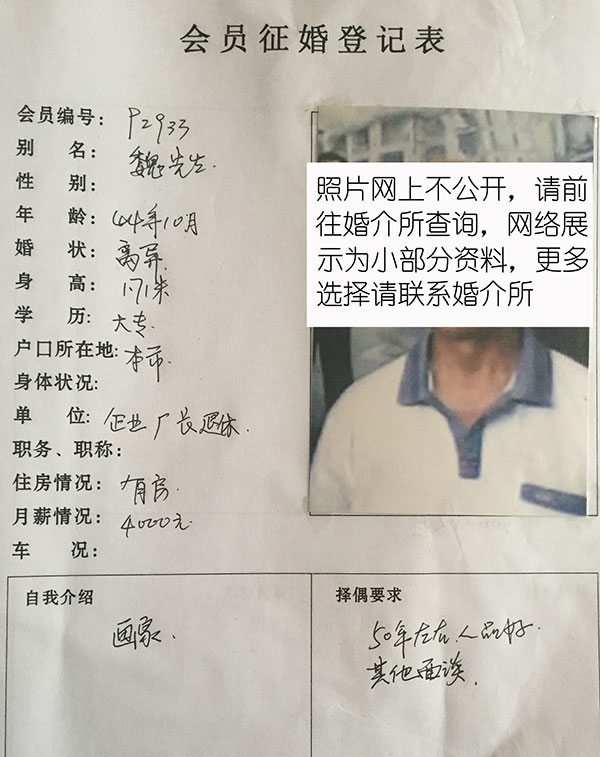 会员征婚登记表
会员编号: P2933
别 名: 魏先生.
性 别:
年 龄: 44年10月
婚 状: 离异.
身 高: 1.71米
学 历: 大专.
户口所在地: 本市.
身体状况:
单 位: 企业厂长退休.
职务、职称:
住房情况: 有房.
月薪情况: 4000元.
车 况:
照片网上不公开，请前
往婚介所查询，网络展
示为小部分资料，更多
选择请联系婚介所
自我介绍
画家.
择偶要求
50年左右.人品好.
其他面谈.